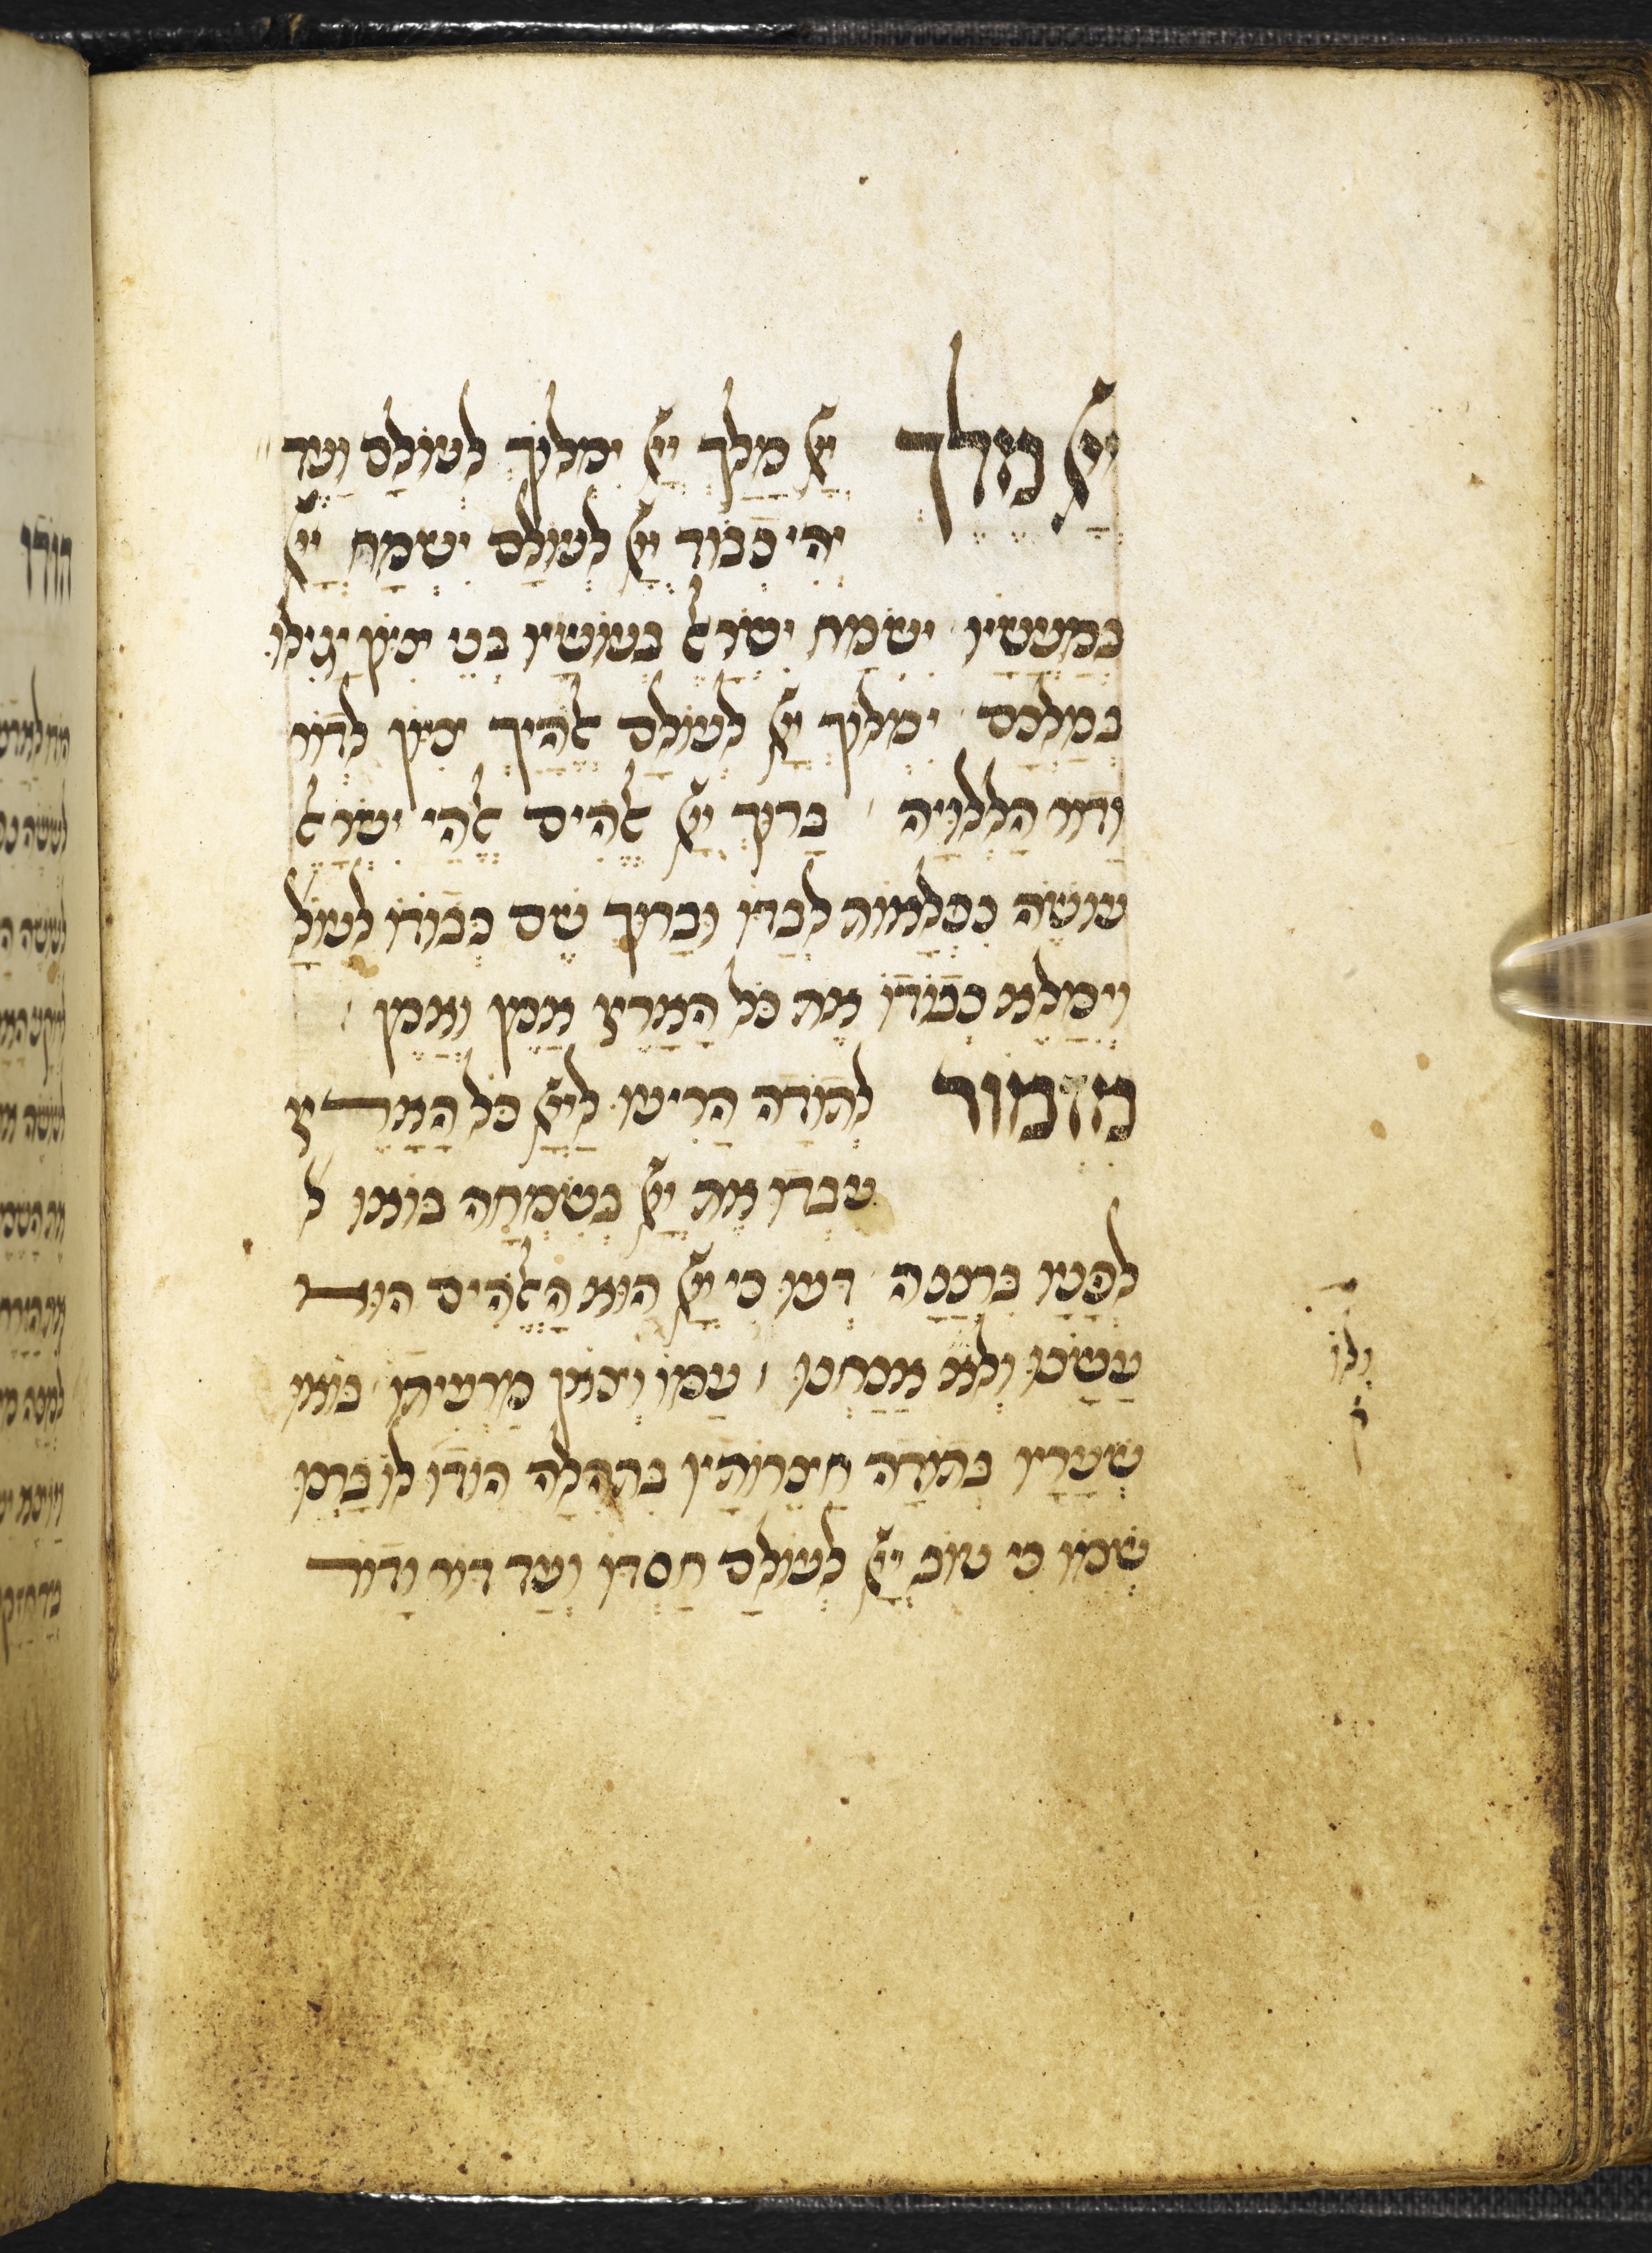 ייָ מֶלֶךְ ייָ מָלַךְ ייָ יִמְלוֹךְ לְעוֹלָם וָעֶד
יְהִי כְבוֹד ייָ לְעוֹלָם יִשְׂמַח ייָ
בְּמַעֲשָׂיו יִשְׂמַח יִשְׂרָאֵל בְּעוֹשָׂיו בְּנֵי צִיּוֹן יָגִילוּ
בְמַלְכָּם יִמְלוֹךְ ייָ לְעוֹלָם אֱלֹהַיִךְ צִיּוֹן לְדוֹר
וָדוֹר הַלְלוּיָהּ בָּרוּךְ ייָ אֱלֹהִים אֱלֹהֵי יִשְׂרָאֵל
עוֹשֵׂה נִפְלָאוֹת לְבַדּוֹ וּבָרוּךְ שֵׁם כְּבוֹדוֹ לְעוֹלָ
וְיִמָּלֵא כְבוֹדוֹ אֶת כָּל הָאָרֶץ אָמֵן וְאָמֵן
מִזְמוֹר לְתוֹדָה הָרִיעוּ לַייָ כָּל הָאָרֶץ
עִבְדוּ אֶת ייָ בְּשִׂמְחָה בּוֹאוּ ל
לְפָנָיו בִּרְנָנָה דְּעוּ כִּי ייָ הוּא הָאֱלֹהִים הוּא
עָשָׂנוּ וְלֹא אֲנַחְנוּ עַמּוֹ וְצֹאן מַרְעִיתוֹ בּוֹאוּ
שְׁעָרָיו בְּתוֹדָה חֲצֵרוֹתָיו בִּתְהִלָּה הוֹדוּ לוֹ בָּרְכוּ
שְׁמוֹ כִּי טוֹב ייָ לְעוֹלָם חַסְדּוֹ וְעַד דּוֹר וָדוֹר
וְלוֹ
ק